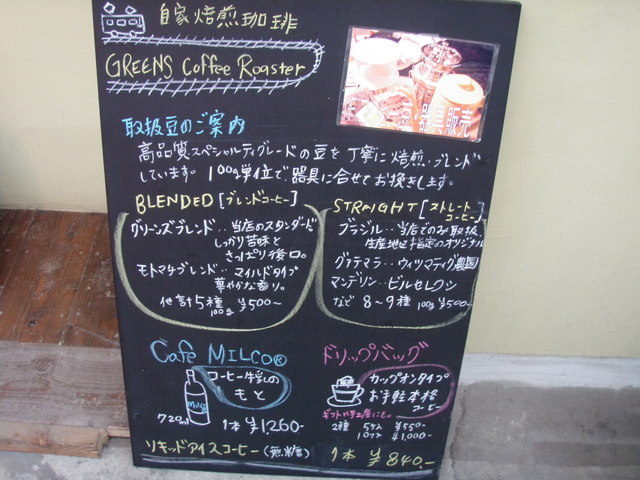 自家焙煎珈琲
GREENS Coffee Roaster
豆・器具販売
取扱豆のご案内
高品質スペシャルティグレードの豆を丁寧に焙煎・ブレンド
しています。100g単位で器具に合せてお挽きします。
BLENDED [ブレンドコーヒー]
グリーンズブレンド‥当店のスタンダード
しっかり苦味と
さっぱり後口。
モトマチブレンド‥マイルドタイプ
華やかな香り。
他 計5種 100g ¥500〜
STRAIGHT [ストレートコーヒー]
ブラジル‥当店でのみ取扱
生産地区指定のオリジナル
グァテマラ‥ウィツマティグ農園
マンデリン‥ビルセレクション
など 8〜9種 100g ¥500〜
Cafe MILCO®
コーヒー牛乳の
もと
Milco
720ml
1本 ¥1260-
リキッドアイスコーヒー(無糖) 1本 ¥840.-
ドリップバッグ
カップオンタイプ
お手軽本格
コーヒー
ギフトや手土産にも。
2種 5ケ入 ¥550-
10ケ入 ¥1,000-